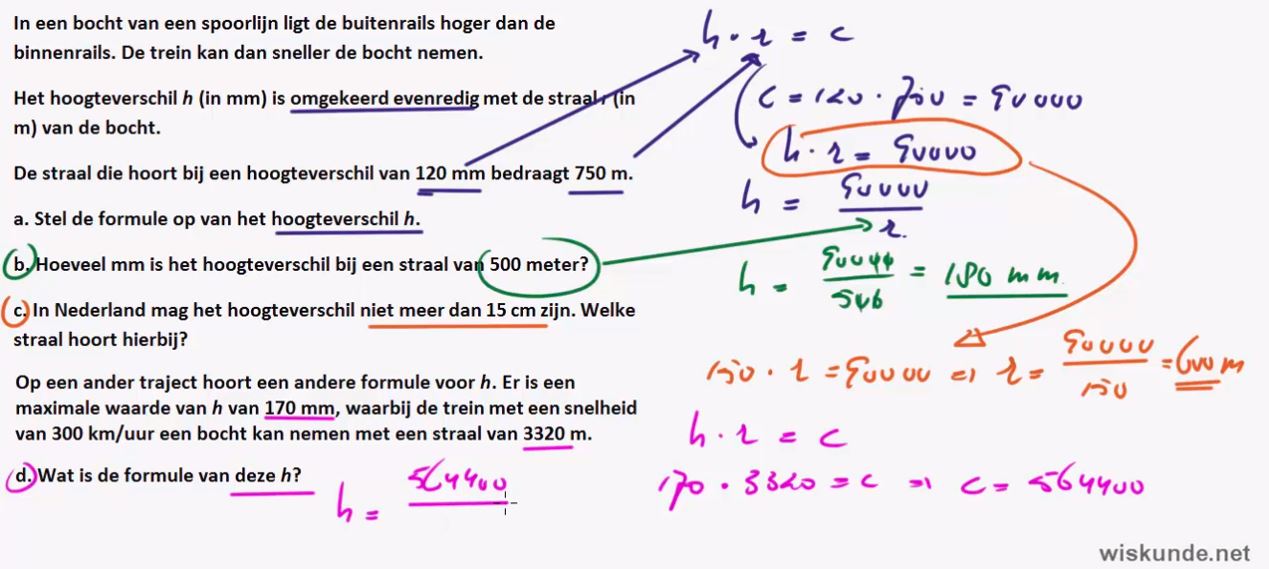 In een bocht van een spoorlijn ligt de buitenrails hoger dan de
binnenrails. De trein kan dan sneller de bocht nemen.
Het hoogteverschil h (in mm) is omgekeerd evenredig met de straal r (in
m) van de bocht.
De straal die hoort bij een hoogteverschil van 120 mm bedraagt 750 m.
a. Stel de formule op van het hoogteverschil h.
b. Hoeveel mm is het hoogteverschil bij een straal van 500 meter?
c. In Nederland mag het hoogteverschil niet meer dan 15 cm zijn. Welke
straal hoort hierbij?
Op een ander traject hoort een andere formule voor h. Er is een
maximale waarde van h van 170 mm, waarbij de trein met een snelheid
van 300 km/uur een bocht kan nemen met een straal van 3320 m.
d. Wat is de formule van deze h?
h = 564400
h · r = c
c = 120 · 750 = 90000
h · r = 90000
h = 90000 / r
h = 90000 / 500 = 180 mm
150 · r = 90000 ⇒ r = 90000 / 150 = 600 m
h · r = c
170 · 3320 = c ⇒ c = 564400
wiskunde.net